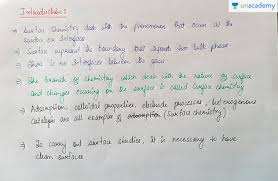 unacademy
Introduction :
→ Surface Chemistry deals with the phenomenon that occurs at the
surface or Interface.
→ Surface represent the boundary that separates two bulk phases.
→ There is no interface between the gases
→ The branch of chemistry which deals with the nature of surface
and changes occurring on the surface is called surface chemistry
→ Adsorption, colloidal properties, electrode processes, heterogenous
catalysis are all examples of (surface chemistry)
→ To carry out surface studies, it is necessary to have
clean surfaces